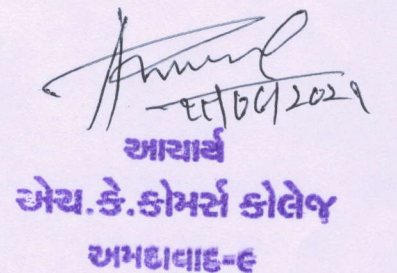 આચાર્ય
એચ.કે.કોમર્સ કોલેજ
અમદાવાદ-૯